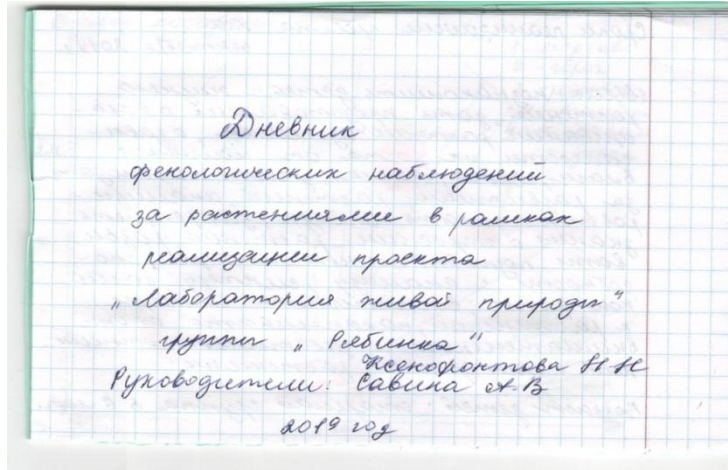 Дневник
фенологических наблюдений
за растениями в рамках
реализации проекта
„Лаборатория живой природы“
группы „Рябинка“
Ксенофонтова Н Н
Руководители: Савина А. В
2019 год